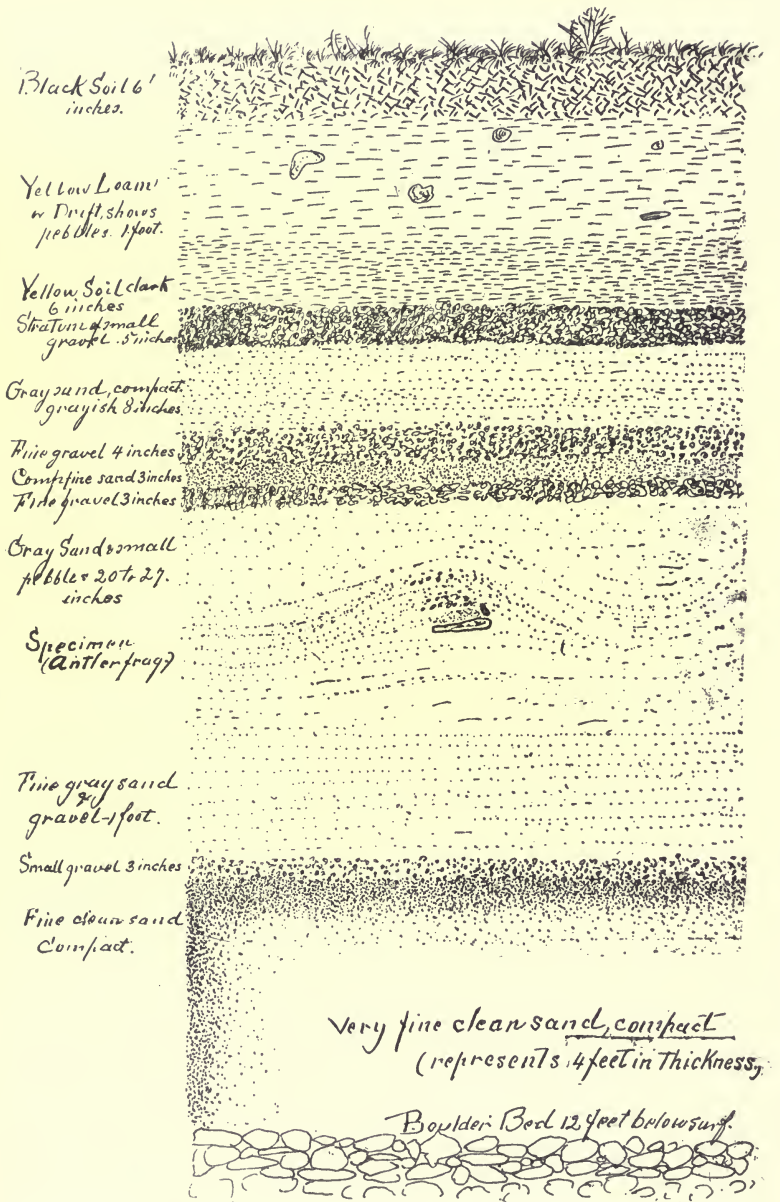 Black Soil 6'
inches.
Yellow Loam'
or Drift, shows
pebbles. 1 foot.
Yellow Soil dark
6 inches
Stratum of small
gravel. 5 inches
Gray sand, compact
grayish 8 inches
Fine gravel 4 inches
Comp. fine sand 3 inches
Fine gravel 3 inches
Gray Sand & small
pebbles 20 to 27.
inches
Specimen
(Antler frag?)
Fine gray sand
&
gravel - 1 foot.
Small gravel 3 inches
Fine clean sand
Compact.
Very fine clean sand, compact
(represents 4 feet in Thickness,
Boulder Bed 12 feet below surf.